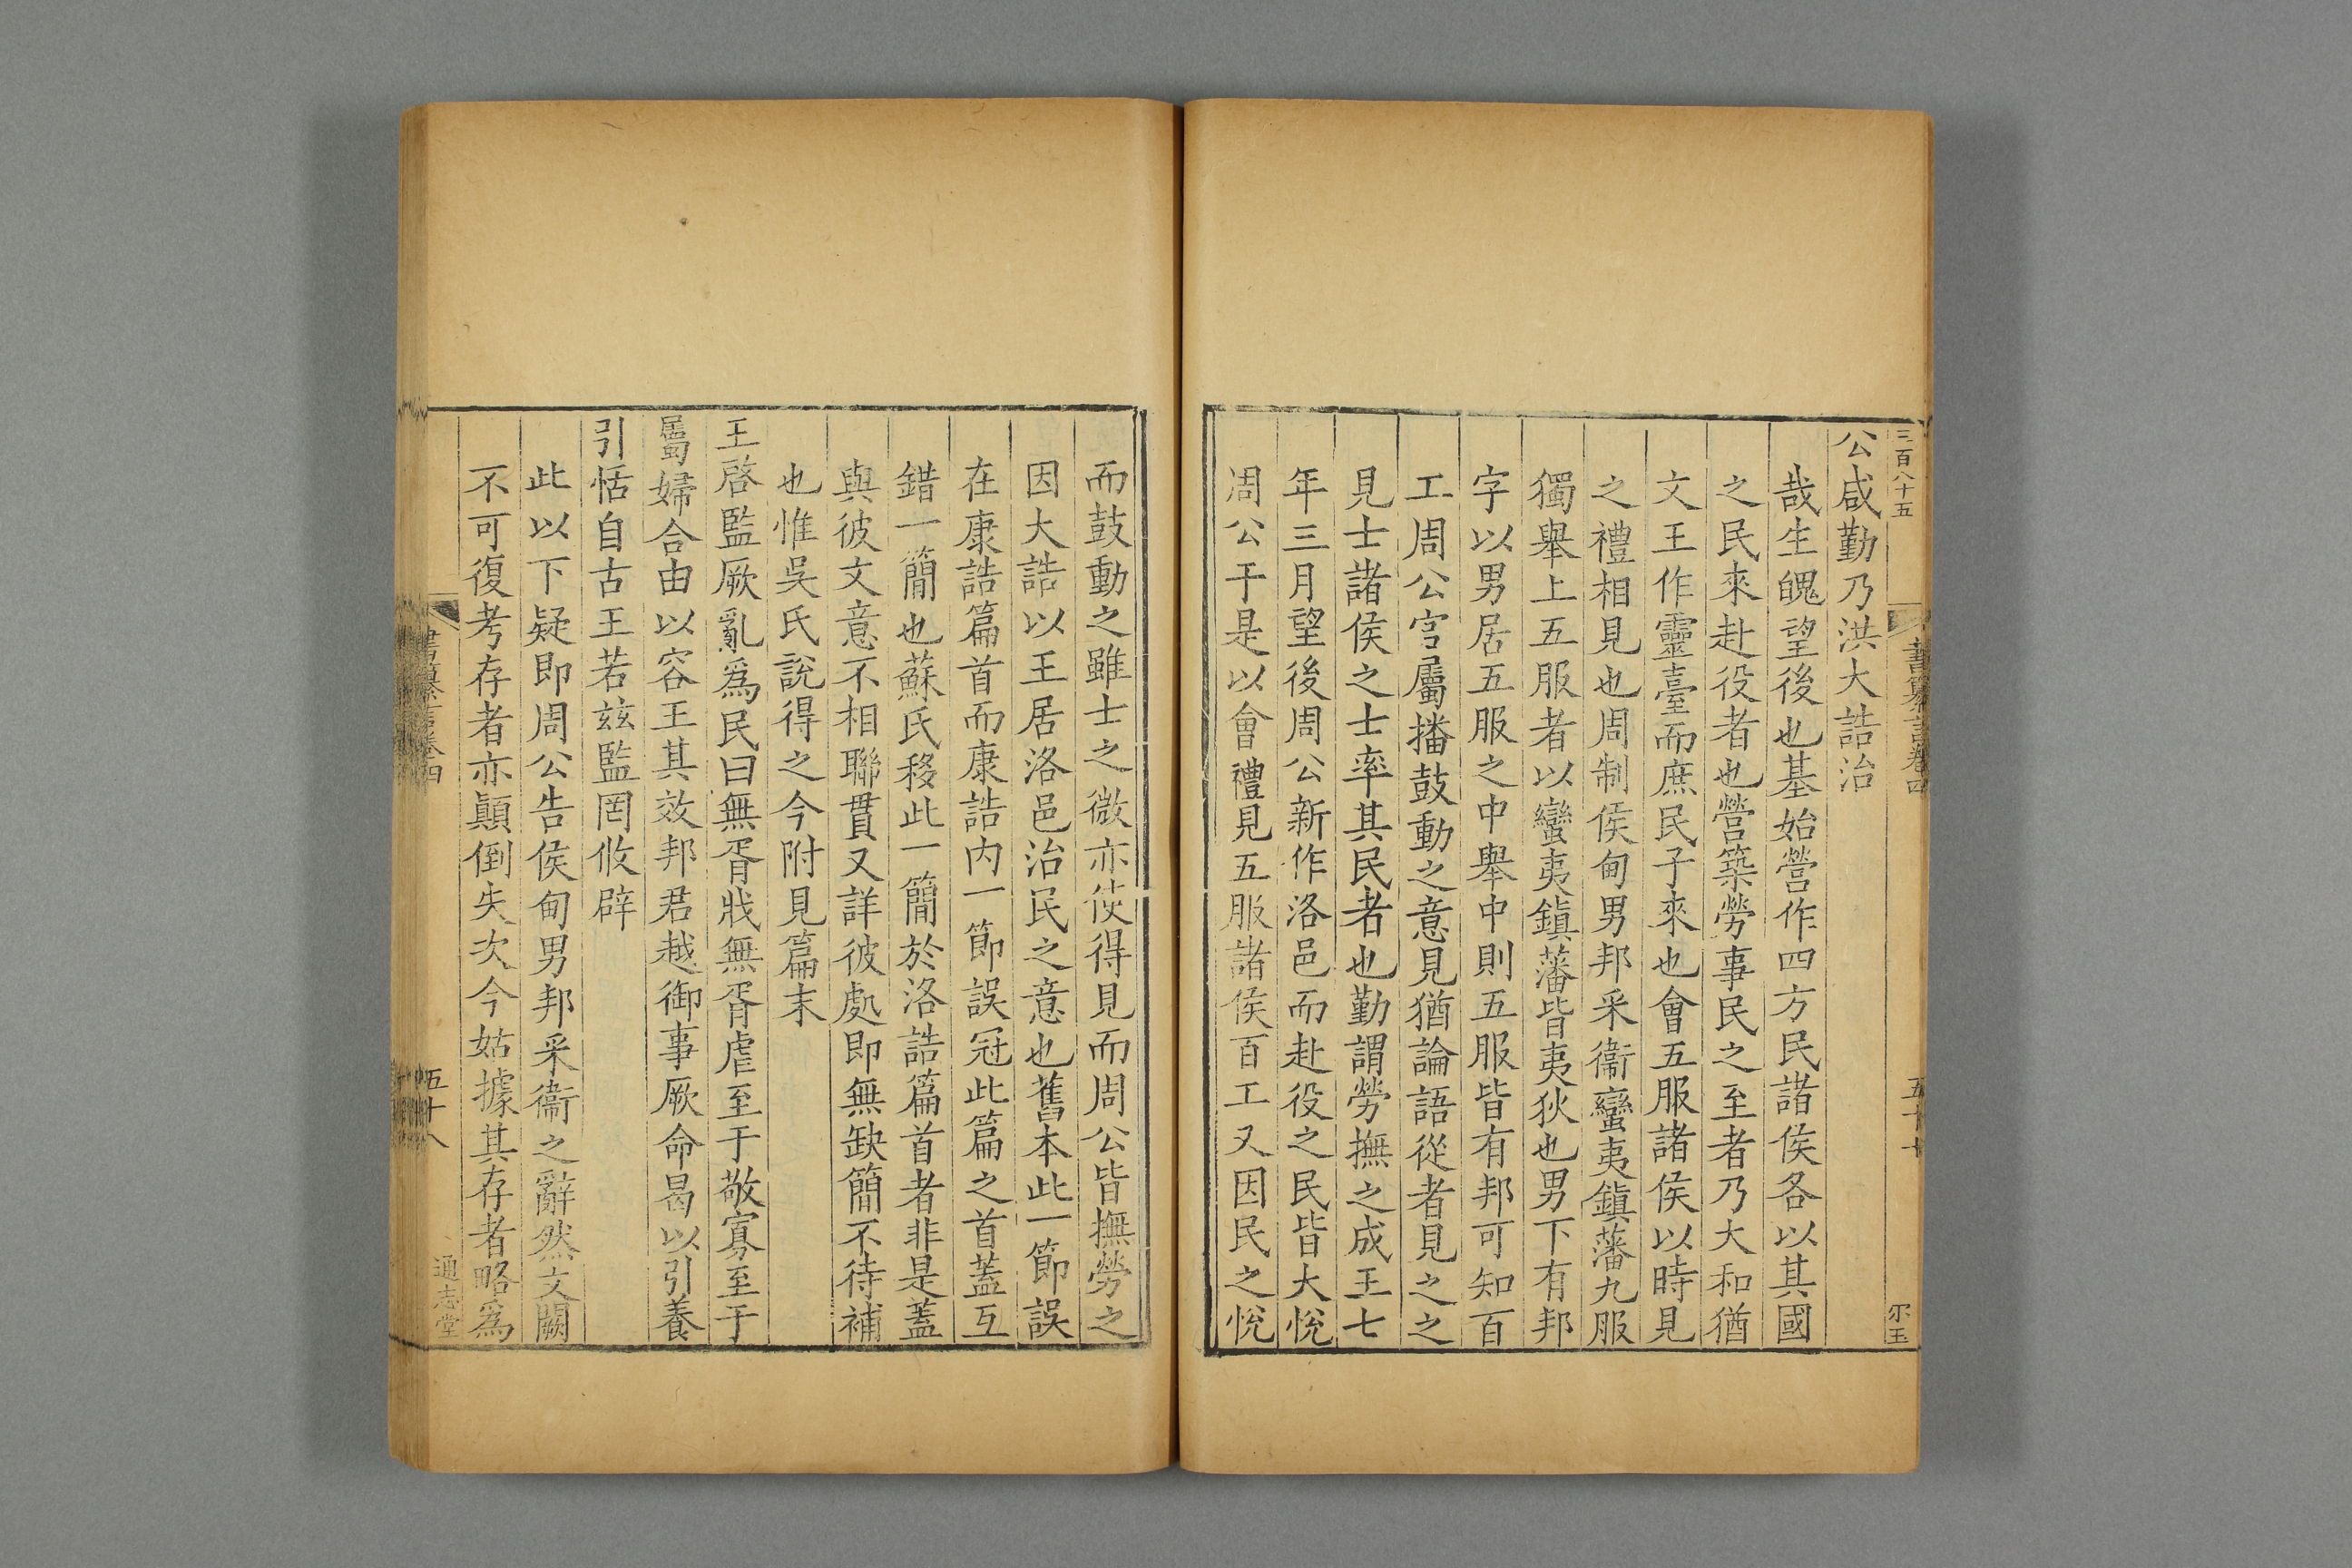 三百八十五
書纂言卷四
五十七
尔玉
公咸勤乃洪大誥治
哉生魄望後也基始營作四方民諸侯各以其國
之民來赴役者也營築勞事民之至者乃大和猶
文王作靈臺而庶民子來也會五服諸侯以時見
之禮相見也周制侯甸男邦采衞蠻夷鎮藩九服
獨舉上五服者以蠻夷鎮藩皆夷狄也男下有邦
字以男居五服之中舉中則五服皆有邦可知百
工周公官屬播鼓動之意見猶論語從者見之之
見士諸侯之士率其民者也勤謂勞撫之成王七
年三月望後周公新作洛邑而赴役之民皆大悅
周公于是以會禮見五服諸侯百工又因民之悅
而鼓動之雖士之微亦使得見而周公皆撫勞之
因大誥以王居洛邑治民之意也舊本此一節誤
在康誥篇首而康誥内一節誤冠此篇之首蓋互
錯一簡也蘇氏移此一簡於洛誥篇首者非是蓋
與彼文意不相聯貫又詳彼處即無缺簡不待補
也惟吳氏說得之今附見篇末
王啓監厥亂爲民曰無胥戕無胥虐至于敬寡至于
屬婦合由以容王其效邦君越御事厥命曷以引養
引恬自古王若兹監罔攸辟
此以下疑即周公告侯甸男邦采衞之辭然文闕
不可復考存者亦顛倒失次今姑據其存者略爲
書纂言卷四
五十八
通志堂